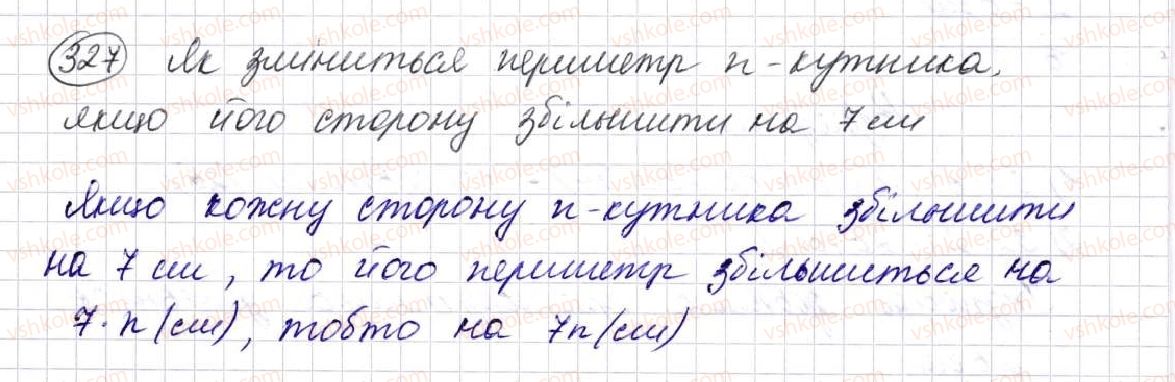 327 Як зміниться периметр n-кутника,
якщо його сторону збільшити на 7 см
Якщо кожну сторону n-кутника збільшити
на 7 см, то його периметр збільшиться на
7·n (см), тобто на 7n (см)